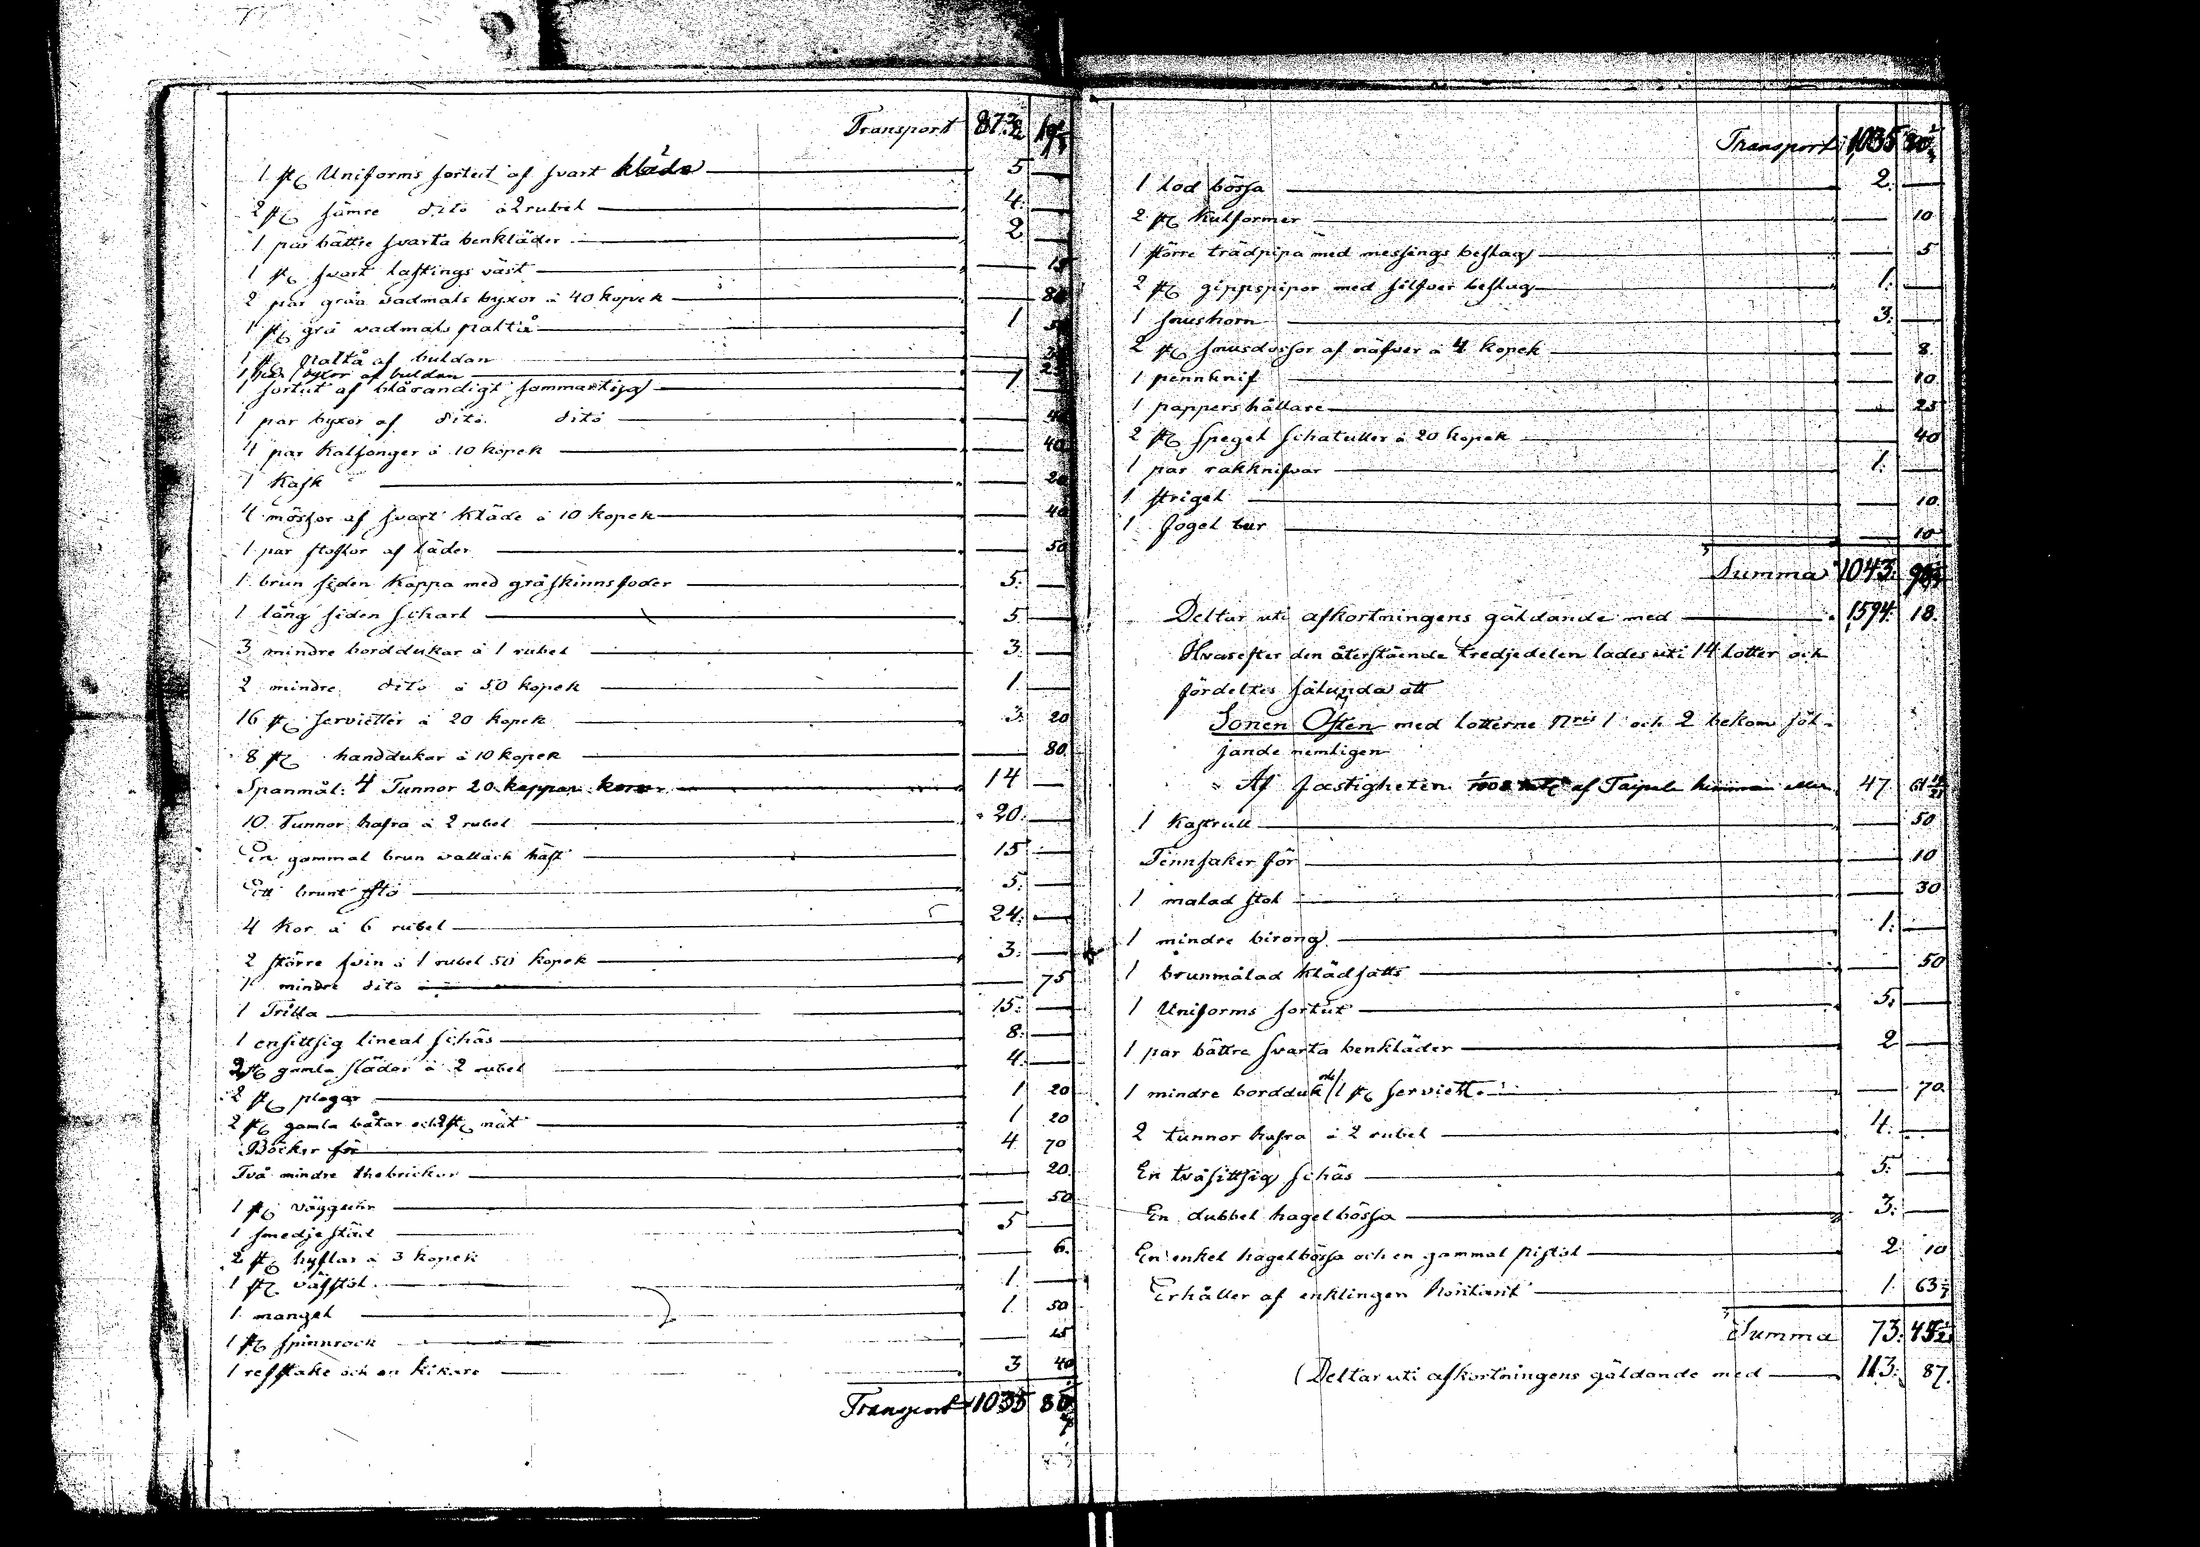 Transport 873.
1 st Uniforms sortut af svart kläde 5 —
2 st sämre dito à 2 rubel 4. —
1 par bättre svarta benkläder 2 —
1 st svart lastings väst — 15
2 par gråa vadmals byxor à 40 kopek — 80
1 st grå vadmals paltå 1 50
1 st paltå af buldan —
1 par byxor af buldan — 25
1 sortut af blårandigt sommartyg 1 —
1 par byxor af dito dito — 40
4 par kalsonger à 10 kopek — 40
1 Kask — 20
4 mössor af svart kläde à 10 kopek — 40
1 par stöflor af läder — 50
1 brun siden kappa med gråskinns foder 5. —
1 lång siden schart 5 —
3 mindre borddukar à 1 rubel 3. —
2 mindre dito à 50 kopek 1. —
16 st servietter à 20 kopek 3. 20
8 st handdukar à 10 kopek — 80
Spanmål: 4 Tunnor 20 kappar korn 14 —
10 Tunnor hafra à 2 rubel 20. —
En gammal brun vallack häst 15 —
Ett brunt sto 5. —
4 Kor à 6 rubel 24. —
2 större svin à 1 rubel 50 kopek 3. —
1 mindre dito — 75
1 Trilla 15. —
1 ensittsig lineal schäs 8. —
2 st gamla slädar à 2 rubel 4. —
2 st plogar 1 20
2 st gamla båtar och 2 st nät 1 20
Böcker för 4 70
Två mindre thebrickor — 20.
1 st vägguhr — 50
1 smedje städ 5 —
2 st hyflar à 3 kopek — 6.
1 st väfstol 1. —
1 mangel 1. 50
1 st spinnrock — 15
1 resstake och en kikare 3 40
Transport 1035
Transport 1035
1 Lod bössa 2. —
2 st Kulformer — 10
1 större trädpipa med messings beslag — 5
2 st gippspipor med silfver beslag 1. —
1 snushorn 3. —
2 st snusdosor af näfver à 4 kopek — 8.
1 pennknif — 10.
1 pappershållare — 25
2 st spegel schatuller à 20 kopek — 40
1 par rakknifvar 1. —
1 strigel — 10.
1 fogel bur — 10
Summa 1043.
Deltar uti afkortningens gäldande med 1594. 18.
Hvarefter den återstående tredjedelen lades uti 14 lotter och
fördeltes sålunda att
Sonen Osten med lotterne Nris 1 och 2 bekom föl-
jande nemligen
Af fastigheten af Taipale 47
1 Kastrull — 50
Tennsaker för — 10
1 målad stol — 30
1 mindre birong 1. —
1 brunmålad klädsatts — 50
1 Uniforms sortut 5. —
1 par bättre svarta benkläder 2 —
1 mindre bordduk och 1 st serviett — 70.
2 tunnor hafra à 2 rubel 4. —
En tvåsittsig schäs 5. —
En dubbel hagelbössa 3. —
En enkel hagelbössa och en gammal pistol 2 10
Erhåller af enklingen 1. 63
Summa 73.
(Deltar uti afkortningens gäldande med 113. 87.